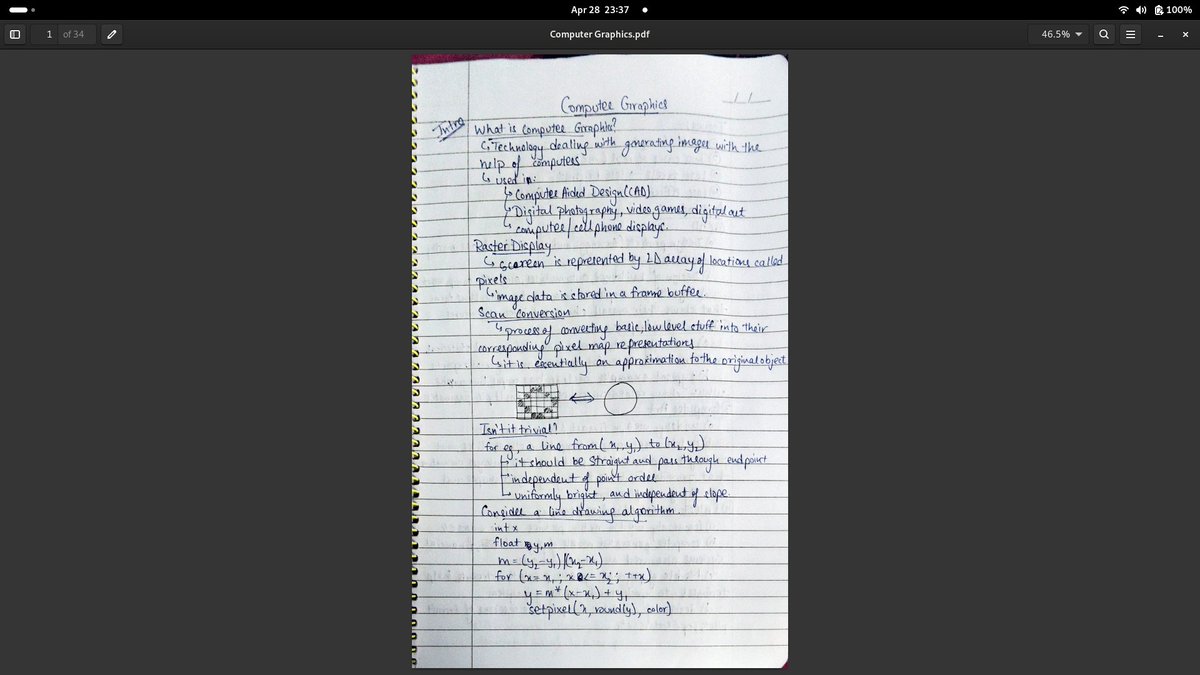 Apr 28 23:37
100%
1 of 34
Computer Graphics.pdf
46.5%
Computer Graphics
Intro
What is Computer Graphics?
↳ Technology dealing with generating images with the
help of computers
↳ used in:
↳ Computer Aided Design (CAD)
↳ Digital photography, video games, digital art
↳ computer/cell phone displays.
Raster Display
↳ screen is represented by 2D array of locations called
pixels
↳ image data is stored in a frame buffer.
Scan Conversion
↳ process of converting basic, low level stuff into their
corresponding pixel map representations
↳ it is essentially an approximation to the original object
Isn't it trivial?
for eg, a line from (x₁, y₁) to (x₂, y₂)
it should be straight and pass through end point
independent of point order
uniformly bright, and independent of slope.
Consider a line drawing algorithm.
int x
float y, m
m = (y₂-y₁)/(x₂-x₁)
for (x = x₁ ; x <= x₂ ; ++x)
y = m * (x-x₁) + y₁
setpixel(x, round(y), color)